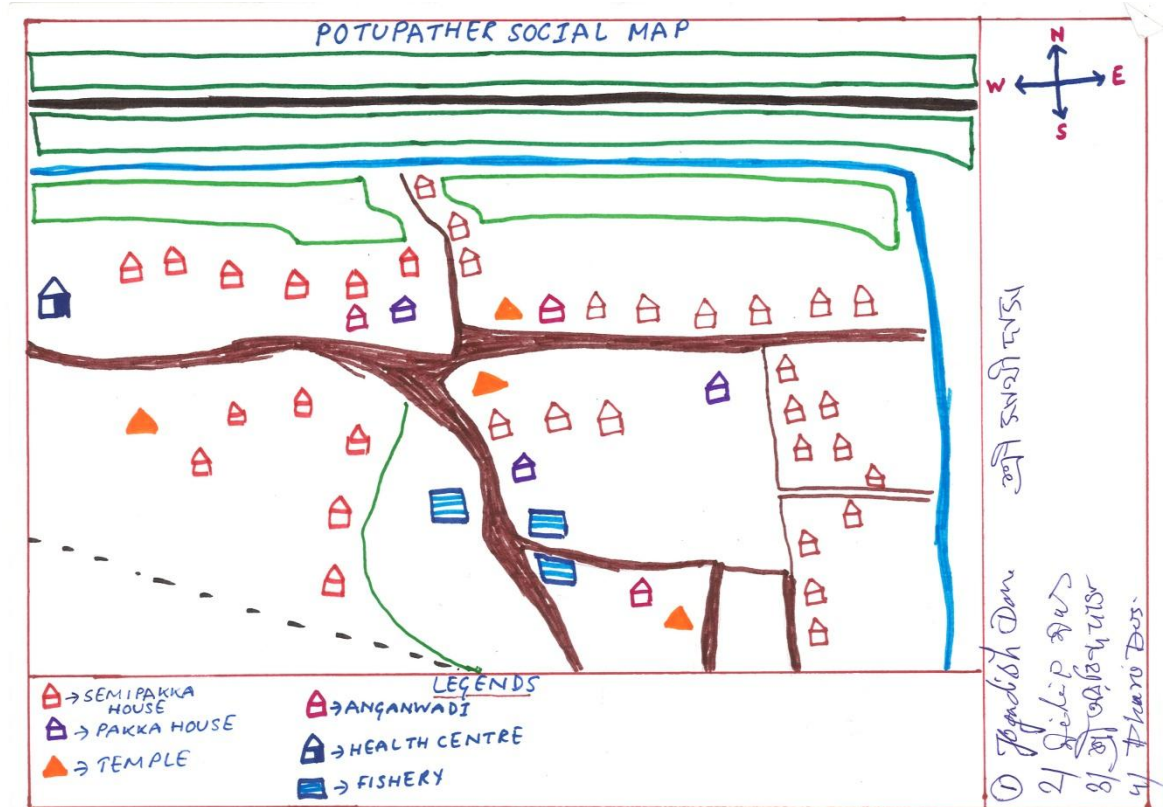 POTUPATHER SOCIAL MAP
N
W
E
S
LEGENDS
→ SEMIPAKKA
HOUSE
→ PAKKA HOUSE
→ TEMPLE
→ ANGANWADI
→ HEALTH CENTRE
→ FISHERY
শ্রী
① Jogadish
2/
3/ শ্রী
4/